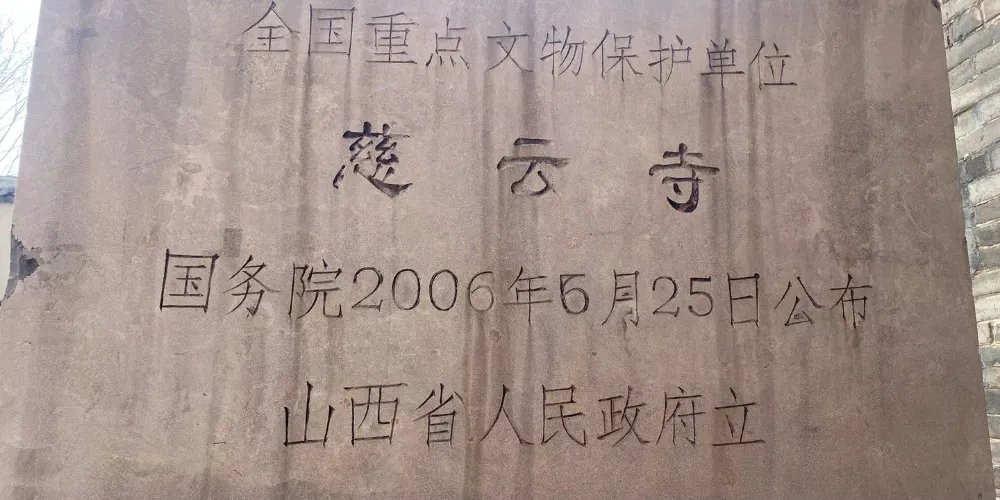 全国重点文物保护单位
慈云寺
国务院2006年5月25日公布
山西省人民政府立